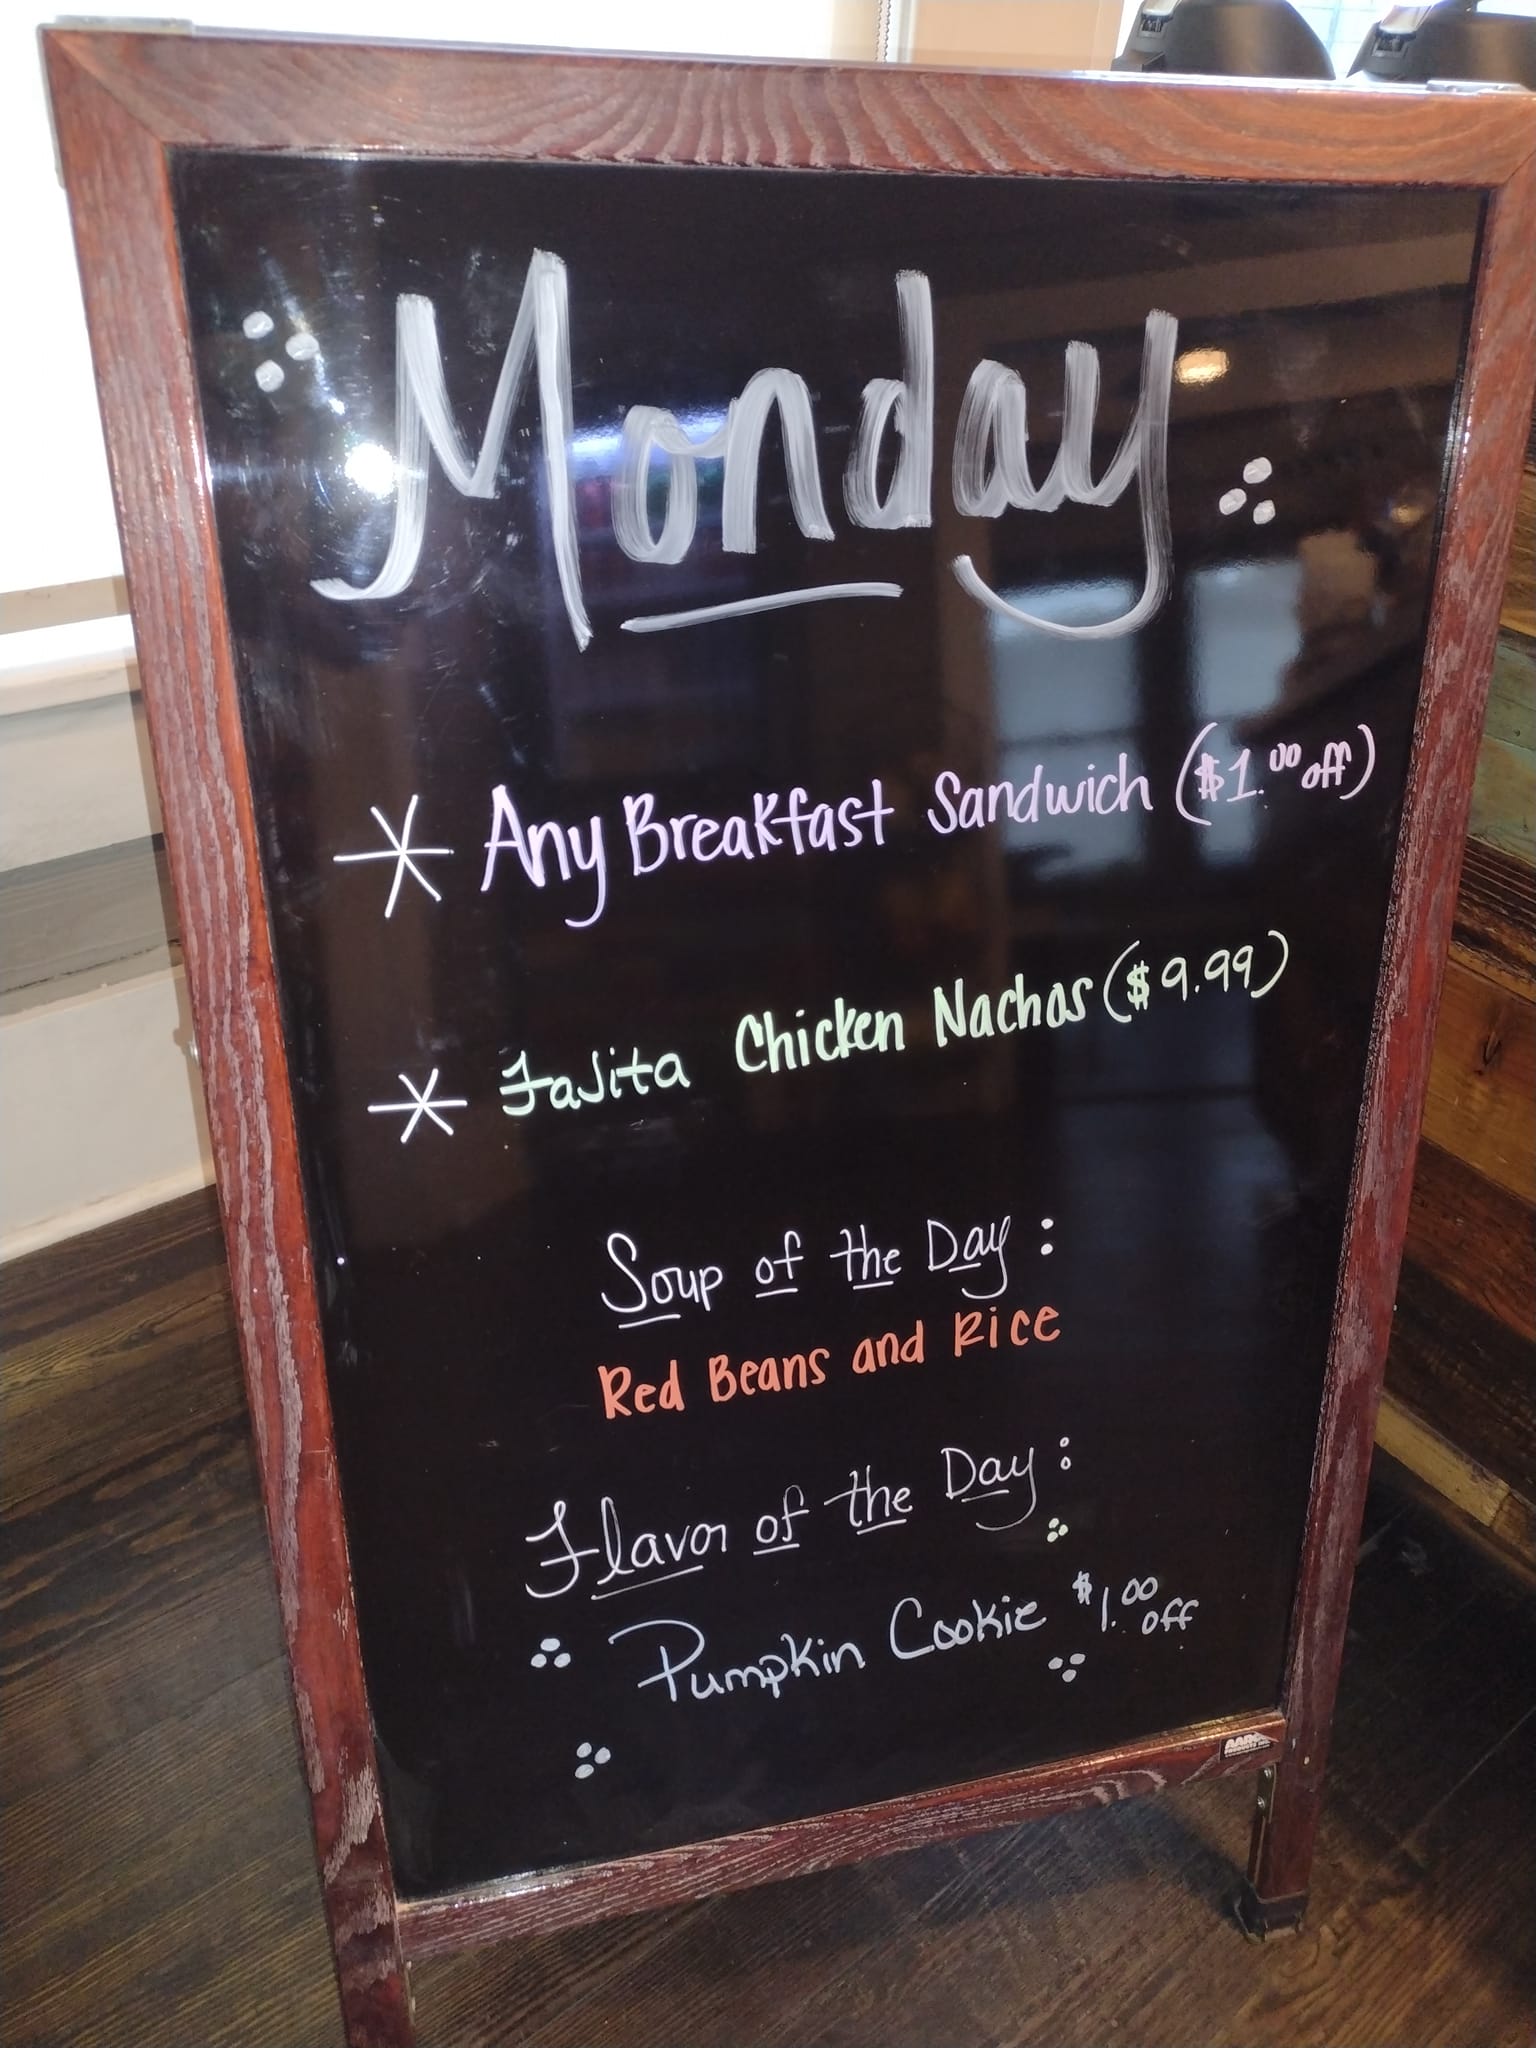 Monday
Any Breakfast Sandwich ($1.00 off)
Fajita Chicken Nachos ($9.99)
Soup of the Day:
Red Beans and Rice
Flavor of the Day:
Pumpkin Cookie $1.00 off